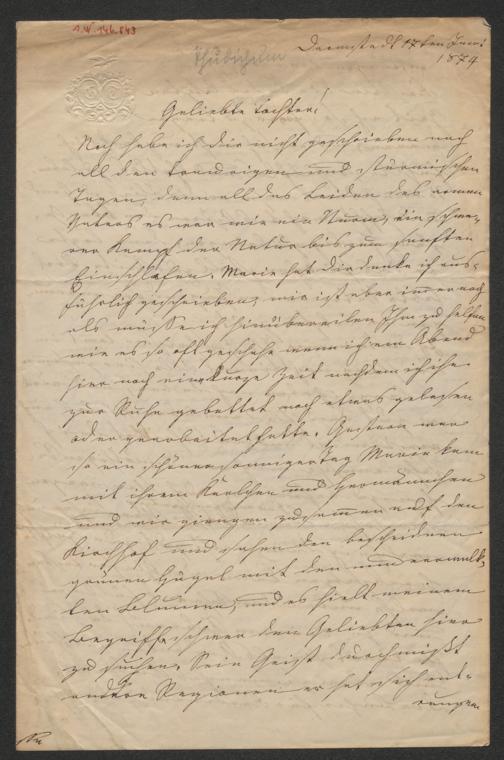 I. N. 146.843
Darmstadt 17ten Juni
1874
Geliebte Tochter!
Noch habe ich Dir nicht geschrieben nach
all den traurigen und stürmischen
Tagen, denn all das Leiden des armen
Vaters es war wie ein Sturm, ein schwe-
rer Kampf der Natur bis zum sanften
Einschlafen. Marie hat Dir denke ich aus-
führlich geschrieben, mir ist aber immer noch
als müsse ich hinübereilen Ihm zu helfen
wie es so oft geschehe wenn ich am Abend
hier noch eine kurze Zeit nachdem ich ihn
zur Ruhe gebettet noch etwas gelesen
oder gearbeitet hatte. Gestern war
so ein schöner sonniger Tag Marie kam
mit ihrem Karlchen und Hermännchen
und wir giengen zusammen auf den
Kirchhof und sahen den bescheidnen
grünen Hügel mit den unverwelk-
ten Blumen, und es hielt meinem
Begriffe schwer den Geliebten hier
zu suchen. Sein Geist durchmißt
andere Regionen er hat sich ent-
rungen